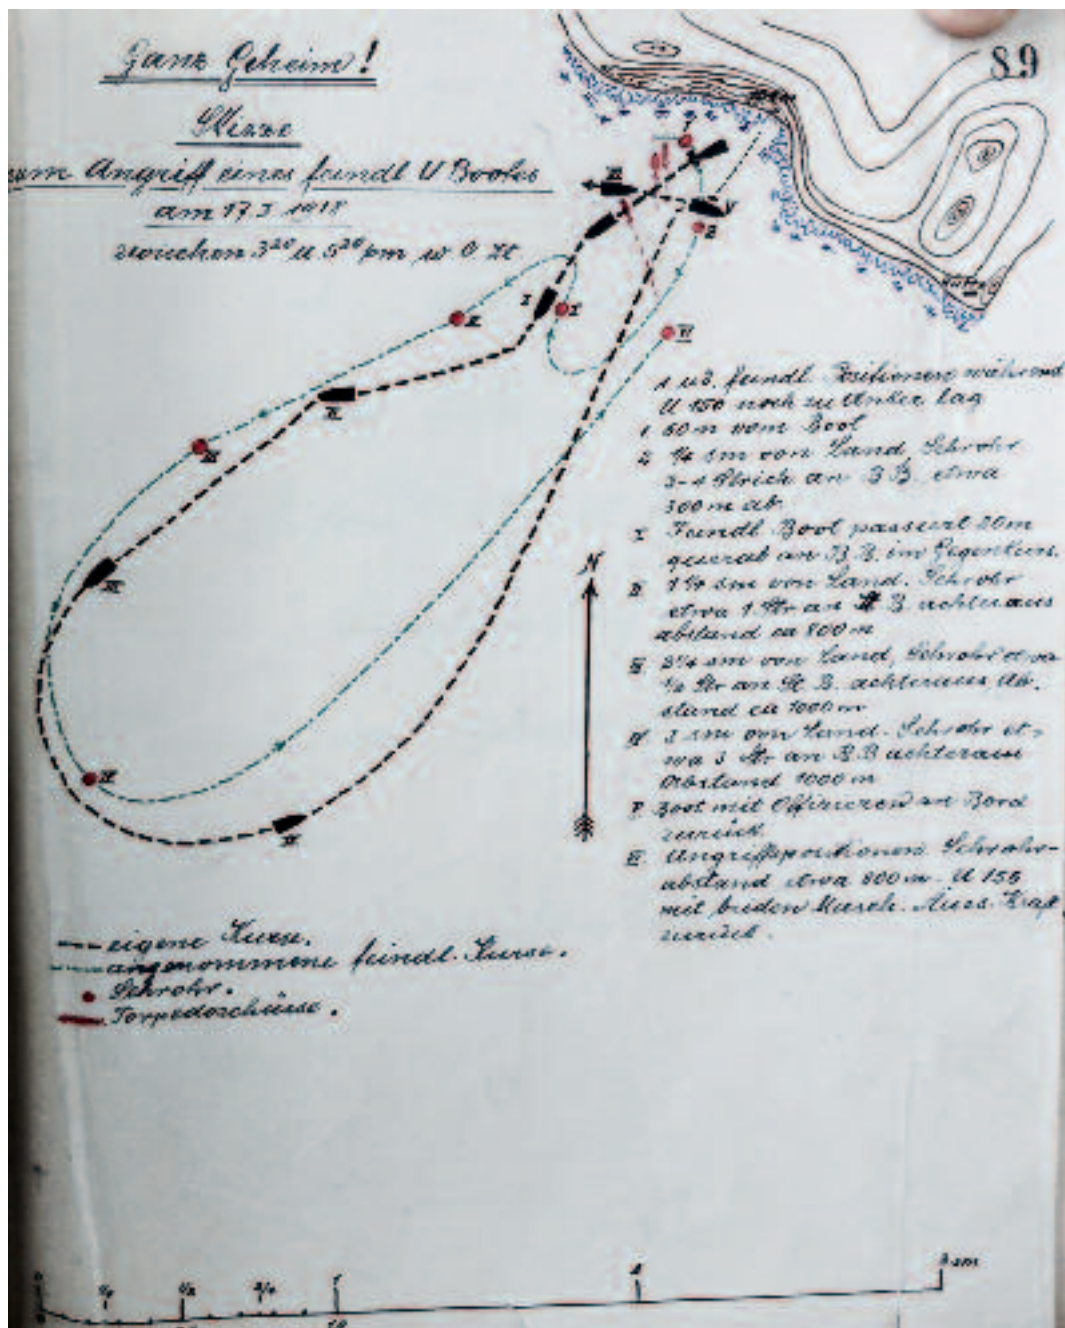 89
Ganz Geheim!
Skizze
zum Angriff eines feindl U Bootes
am 17.3 1918
zwischen 3 20 u 5 20 pm w 0 Zt
1 u 2. feindl. Positionen während
U 156 noch zu Anker lag
1. 60 m vom Boot
2. 1/4 sm von Land, Sehrohr
3-4 Strich an B.B. etwa
300 m ab.
I Feindl. Boot passiert 20m
querab an B.B. im Gegenkurs.
II 1 1/4 sm von Land. Sehrohr
etwa 1 Str an B. achteraus
abstand ca 800 m
III 2 1/4 sm von Land, Sehrohr etwa
1/2 Str an St. B. achteraus, Ab-
stand ca 1000 m
IV 3 sm von Land. Sehrohr et-
wa 3 Str an B.B achteraus
Abstand 1000 m
V Boot mit Offizieren an Bord
zurück.
VI Angriffspositionen. Sehrohr-
abstand etwa 800 m. U 156
mit beiden Masch. Kraft
zurück.
N
eigene Kurse.
angenommene feindl. Kurse.
Sehrohr.
Torpedoschüsse.
I
I
II
II
III
III
IV
IV
V
VI
VI
1
2
0 1/4 1/2 3/4 1 2 3 sm